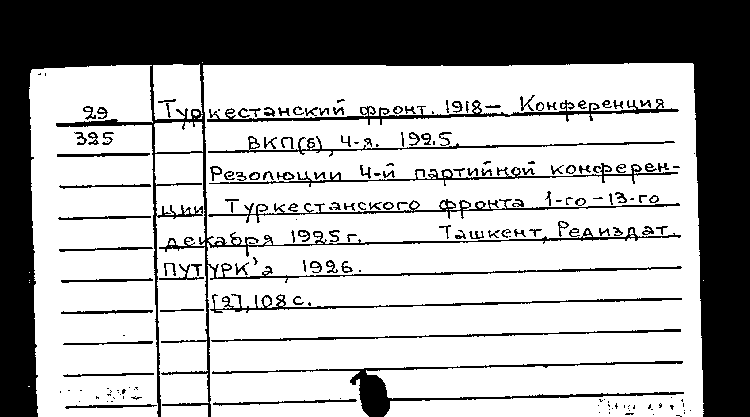 29 Туркестанский фронт. 1918– Конференция
325 ВКП(б), 4-я. 1925.
Резолюции 4-й партийной конферен-
ции Туркестанского фронта 1-го-13-го
декабря 1925г. Ташкент, Редиздат.
ПУТУРК'а, 1926.
[2], 108 с.